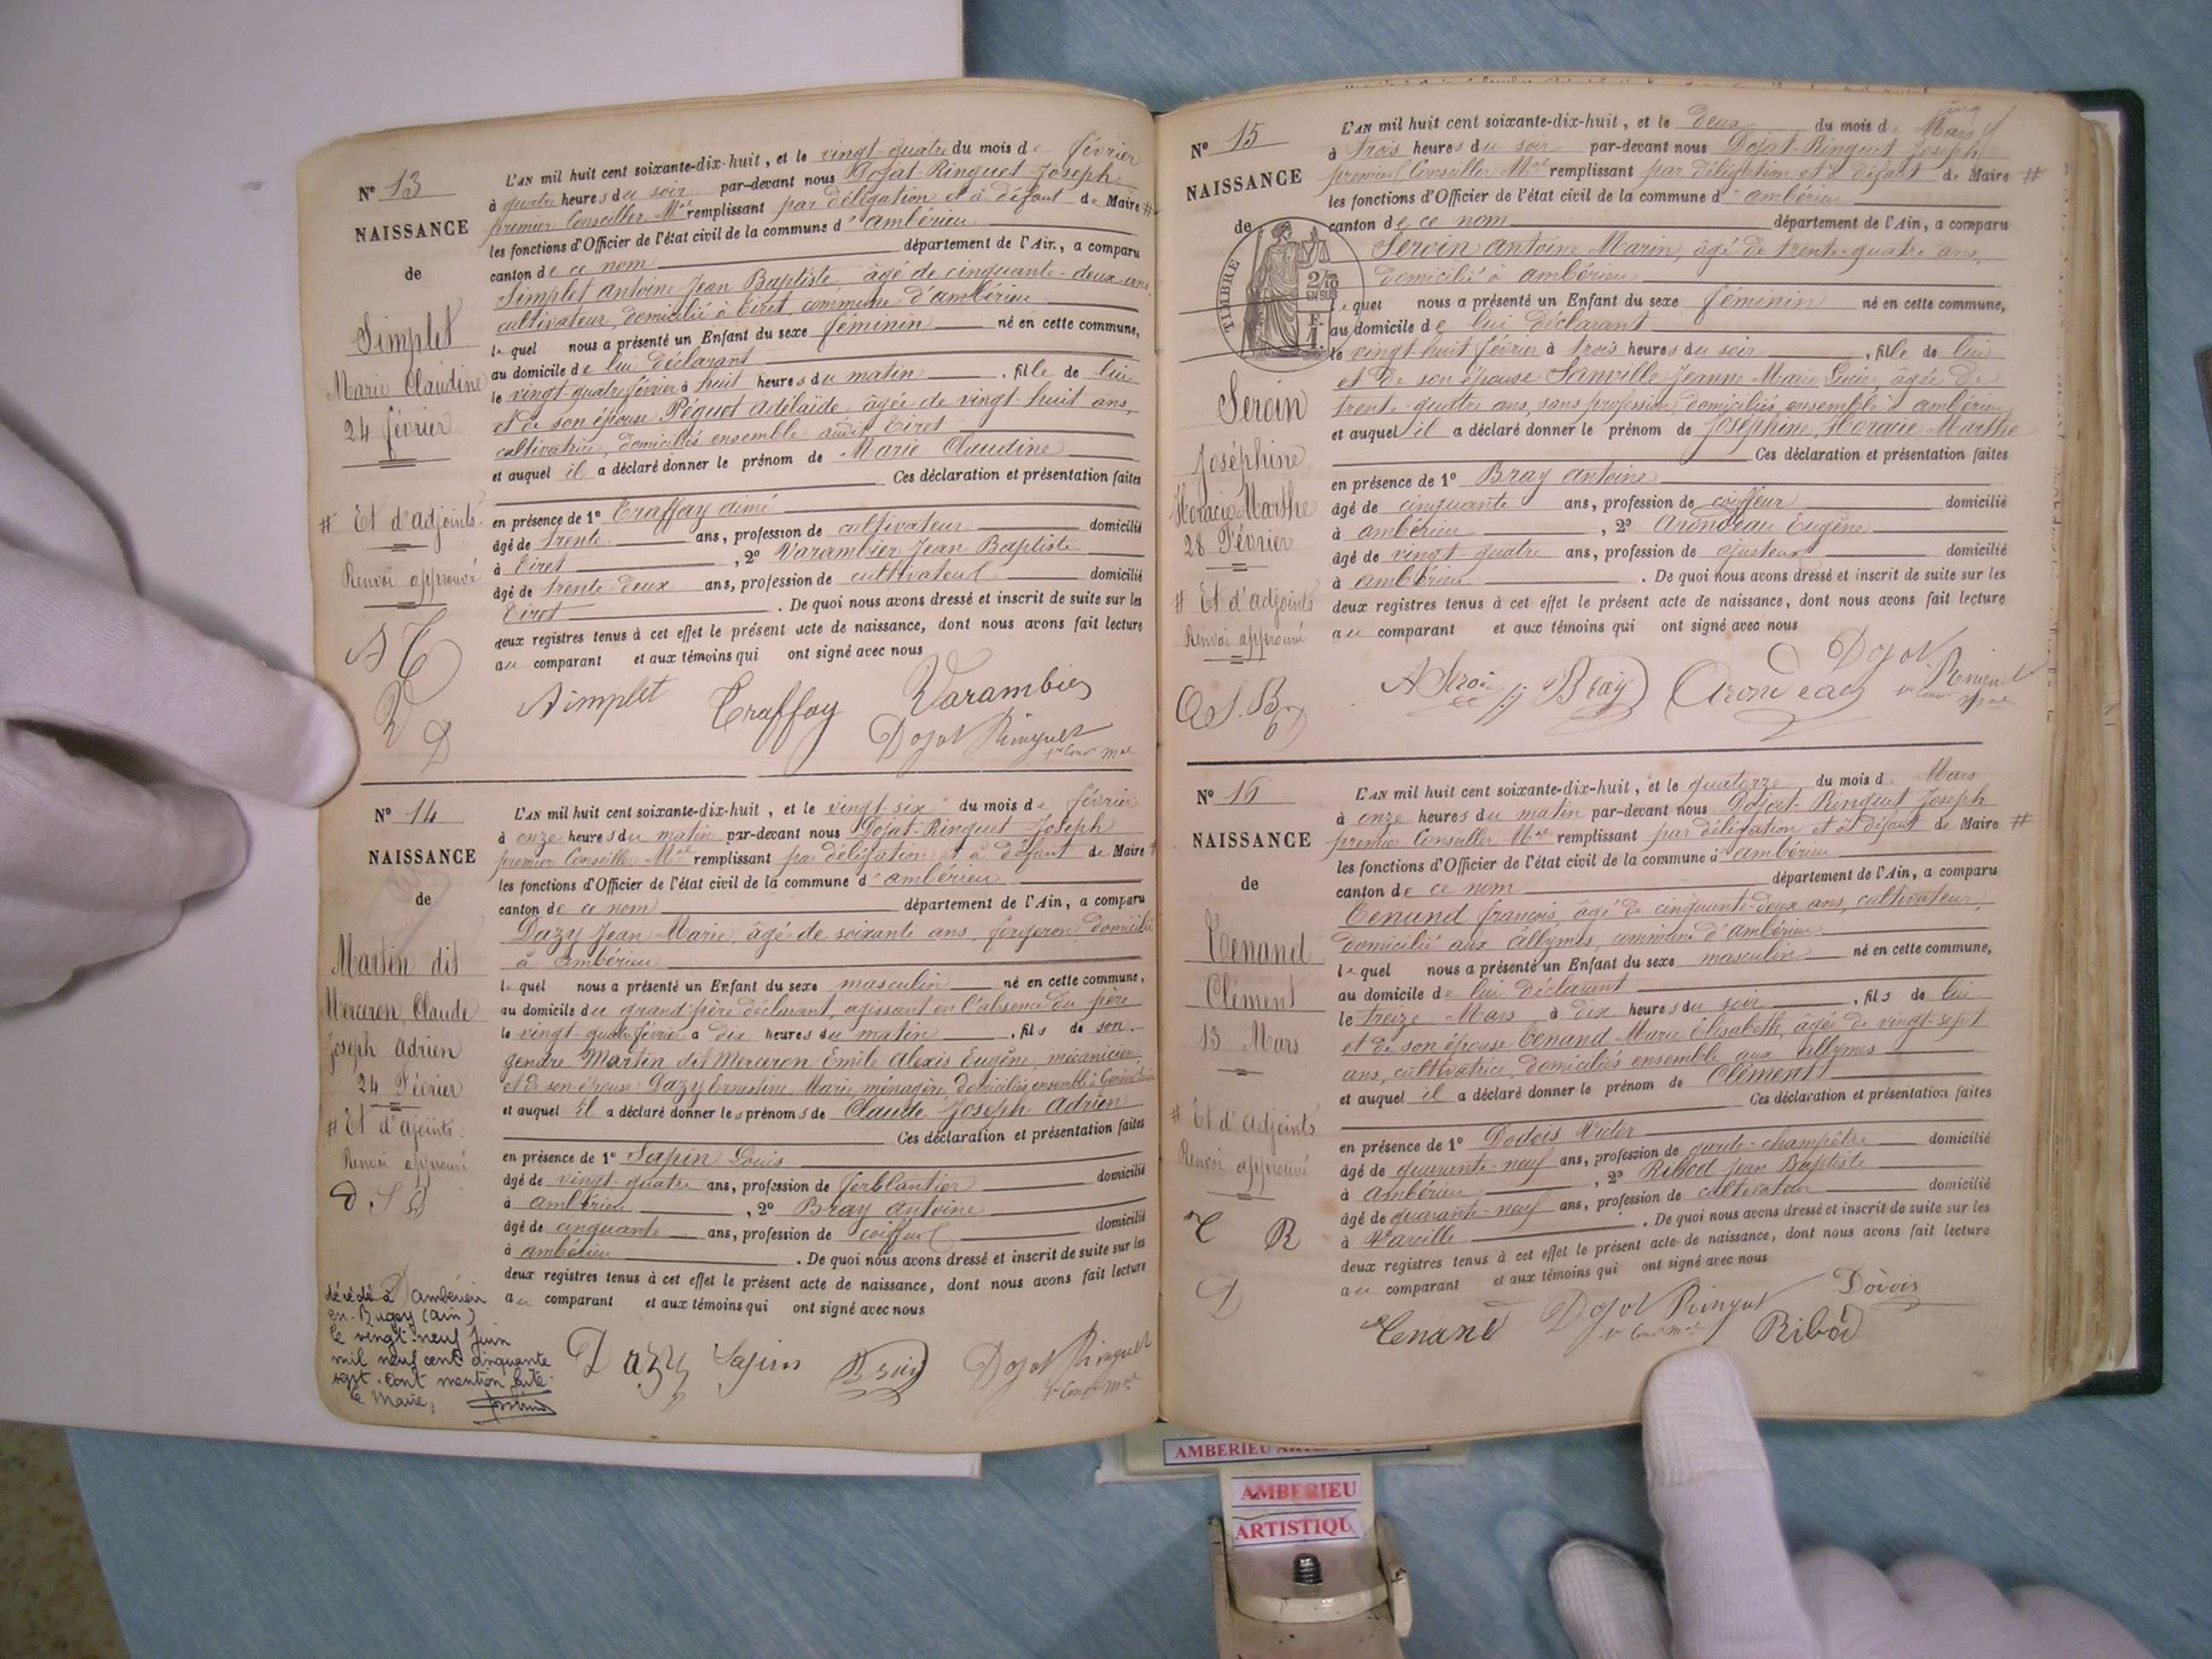 N° 13
NAISSANCE
de
Simplet
Marie Claudine
24 février
# Et d'adjoints.
Renvoi approuvé
L'AN mil huit cent soixante-dix-huit, et le vingt-quatre du mois de février
à quatre heures du soir par-devant nous Dojat-Ringuet Joseph
premier Conseiller Mal remplissant par délégation et à défaut de Maire #
les fonctions d'Officier de l'état civil de la commune d'ambérieu
canton de ce nom département de l'Ain, a comparu
Simplet antoine Jean Baptiste âgé de cinquante-deux ans
cultivateur, domicilié à Tiret, commune d'ambérieu
lequel nous a présenté un Enfant du sexe féminin né en cette commune,
au domicile de lui déclarant
le vingt-quatre février à huit heures du matin, fille de lui
et de son épouse Péguet adélaïde, âgée de vingt-huit ans,
cultivatrice, domiciliés ensemble audit Tiret
et auquel il a déclaré donner le prénom de Marie Claudine
Ces déclaration et présentation faites
en présence de 1° Traffay aimé
âgé de trente ans, profession de cultivateur domicilié
à Tiret, 2° Varambier Jean Baptiste
âgé de trente-deux ans, profession de cultivateur domicilié
Tiret. De quoi nous avons dressé et inscrit de suite sur les
deux registres tenus à cet effet le présent acte de naissance, dont nous avons fait lecture
au comparant et aux témoins qui ont signé avec nous
Simplet Traffay Varambier
Dojat Ringuet
N° 14
NAISSANCE
de
Martin dit
Merceron, Claude
Joseph Adrien
24 Février
# Et d'ajoints.
Renvoi approuvé
D. S. B
décédé à Ambérieu
en-Bugey (Ain)
le vingt-neuf Juin
mil neuf cent cinquante
sept. Dont mention faite.
Le Maire,
L'AN mil huit cent soixante-dix-huit, et le vingt-six du mois de février
à onze heures du matin par-devant nous Dojat-Ringuet Joseph
premier Conseiller Mal remplissant par délégation et à défaut de Maire #
les fonctions d'Officier de l'état civil de la commune d'ambérieu
canton de ce nom département de l'Ain, a comparu
Dazy Jean-Marie, âgé de soixante ans, forgeron, domicilié
à ambérieu
lequel nous a présenté un Enfant du sexe masculin né en cette commune,
au domicile du grand'père déclarant, agissant en l'absence du père
le vingt-quatre février à dix heures du matin, fils de son
gendre Martin dit Merceron Emile Alexis Eugène, mécanicien,
et de son épouse Dazy Ernestine Marie, ménagère, domiciliés ensemble à
et auquel il a déclaré donner les prénoms de Claude Joseph Adrien
Ces déclaration et présentation faites
en présence de 1° Sapin Louis
âgé de vingt-quatre ans, profession de ferblantier domicilié
à ambérieu, 2° Bray antoine
âgé de cinquante ans, profession de coiffeur domicilié
à ambérieu. De quoi nous avons dressé et inscrit de suite sur les
deux registres tenus à cet effet le présent acte de naissance, dont nous avons fait lecture
au comparant et aux témoins qui ont signé avec nous
Dazy Sapin Bray Dojat Ringuet
N° 15
NAISSANCE
de
TIMBRE
2/10
EN SUS
Seroin
Joséphine
Horacie Marthe
28 Février
# Et d'adjoints
Renvoi approuvé
L'AN mil huit cent soixante-dix-huit, et le deux du mois de Mars
à trois heures du soir par-devant nous Dojat-Ringuet Joseph
premier Conseiller Mal remplissant par délégation et à défaut de Maire #
les fonctions d'Officier de l'état civil de la commune d'ambérieu
canton de ce nom département de l'Ain, a comparu
Seroin antoine Marin, âgé de trente-quatre ans,
domicilié à ambérieu
lequel nous a présenté un Enfant du sexe féminin né en cette commune,
au domicile de lui déclarant
le vingt-huit février à trois heures du soir, fille de lui
et de son épouse Jeanne Marie Lucie, âgée de
trente-quatre ans, sans profession, domiciliés ensemble à ambérieu
et auquel il a déclaré donner le prénom de Joséphine, Horacie Marthe
Ces déclaration et présentation faites
en présence de 1° Bray antoine
âgé de cinquante ans, profession de coiffeur domicilié
à ambérieu, 2° Arondeau Eugène
âgé de vingt-quatre ans, profession de ajusteur domicilié
à ambérieu. De quoi nous avons dressé et inscrit de suite sur les
deux registres tenus à cet effet le présent acte de naissance, dont nous avons fait lecture
au comparant et aux témoins qui ont signé avec nous
Bray Arondeau Dojat
N° 16
NAISSANCE
de
Tenand
Clément
13 Mars
# Et d'adjoints
Renvoi approuvé
T R
D
L'AN mil huit cent soixante-dix-huit, et le quatorze du mois d Mars
à onze heures du matin par-devant nous Dojat-Ringuet Joseph
premier Conseiller Mal remplissant par délégation et à défaut de Maire #
les fonctions d'Officier de l'état civil de la commune d'ambérieu
canton de ce nom département de l'Ain, a comparu
Tenand françois, âgé de cinquante-deux ans, cultivateur,
domicilié aux allymes, commune d'ambérieu
lequel nous a présenté un Enfant du sexe masculin né en cette commune,
au domicile de lui déclarant
le treize Mars à dix heures du soir, fils de lui
et de son épouse Tenand Marie Elisabeth, âgée de vingt-sept
ans, cultivatrice, domiciliés ensemble aux allymes
et auquel il a déclaré donner le prénom de Clément
Ces déclaration et présentation faites
en présence de 1° Dodois Victor
âgé de quarante-neuf ans, profession de garde-champêtre domicilié
à ambérieu, 2° Ribod Jean Baptiste
âgé de quarante-neuf ans, profession de cultivateur domicilié
à Vareille. De quoi nous avons dressé et inscrit de suite sur les
deux registres tenus à cet effet le présent acte de naissance, dont nous avons fait lecture
au comparant et aux témoins qui ont signé avec nous
Tenand Dojat Ringuet Ribod
AMBERIEU
ARTISTIQU